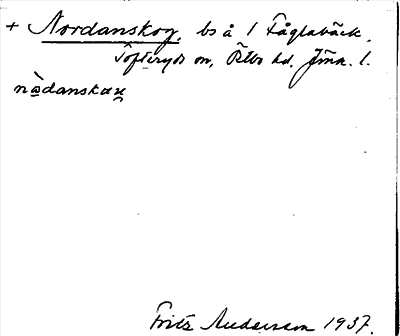 + Nordanskog, bs å 1 Fåglabäck,
Tofteryds sn, Östbo hd, Jönk. l.
nådanskɑu̯
Fritz Andersson 1937.